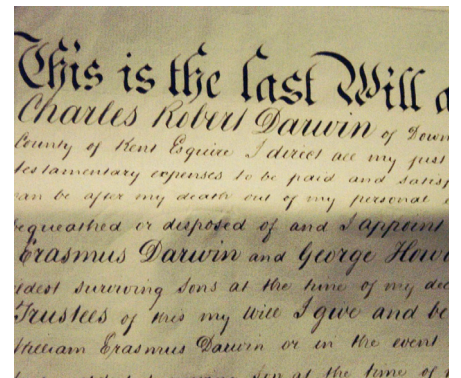 This is the last Will a
Charles Robert Darwin of Down
County of Kent Esquire I direct all my just
testamentary expenses to be paid and satisf
can be after my death out of my personal
bequeathed or disposed of and I appoint
Erasmus Darwin and George Howa
eldest surviving sons at the time of my dec
Trustees of this my Will I give and be
William Erasmus Darwin or in the event
son at the time of